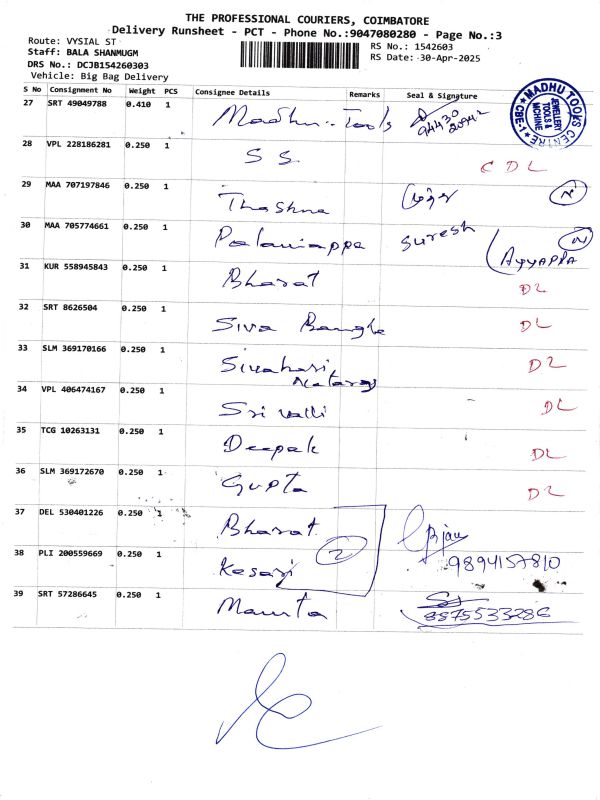 THE PROFESSIONAL COURIERS, COIMBATORE
Delivery Runsheet - PCT - Phone No.:9047080280 - Page No.:3
Route: VYSIAL ST
RS No.: 1542603
Staff: BALA SHANMUGM
RS Date: 30-Apr-2025
DRS No.: DCJB154260303
Vehicle: Big Bag Delivery
S No Consignment No Weight PCS Consignee Details Remarks Seal & Signature
27 SRT 49049788 0.410 1 Madhu Tools 94430
MADHU TOOLS CENTRE
JEWELLERY TOOLS & MACHINE
CBE-1
28 VPL 228186281 0.250 1 S S. CDL
29 MAA 707197846 0.250 1 Thashna N
30 MAA 705774661 0.250 1 Palaniappa Suresh AYYAPPA N
31 KUR 558945843 0.250 1 Bharat DL
32 SRT 8626504 0.250 1 Siva Bangle DL
33 SLM 369170166 0.250 1 Sivahari Nataraj DL
34 VPL 406474167 0.250 1 Sri Valli DL
35 TCG 10263131 0.250 1 Deepak DL
36 SLM 369172670 0.250 1 Gupta DL
37 DEL 530401226 0.250 1 Bharat
2
38 PLI 200559669 0.250 1 Kesari 9894157810
39 SRT 57286645 0.250 1 Mamta 8575533286